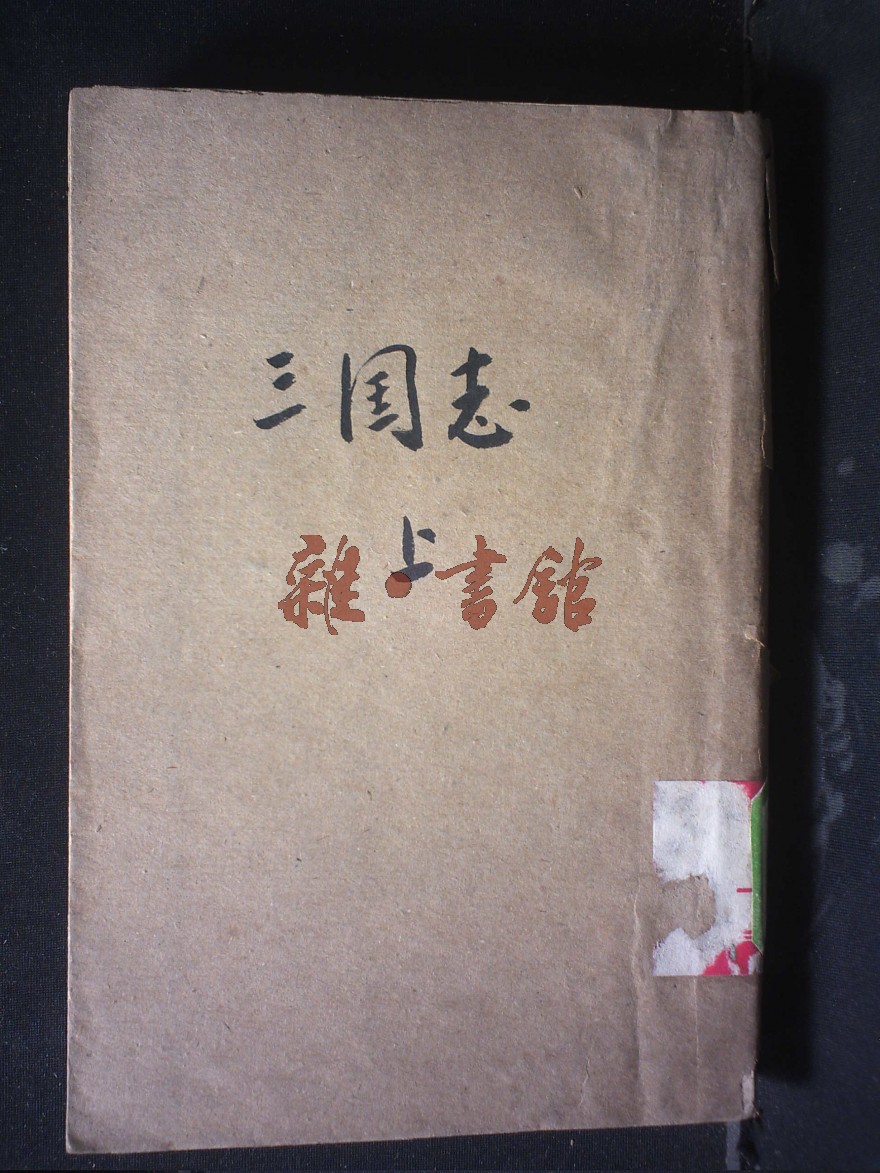 三国志
上
雜·書館